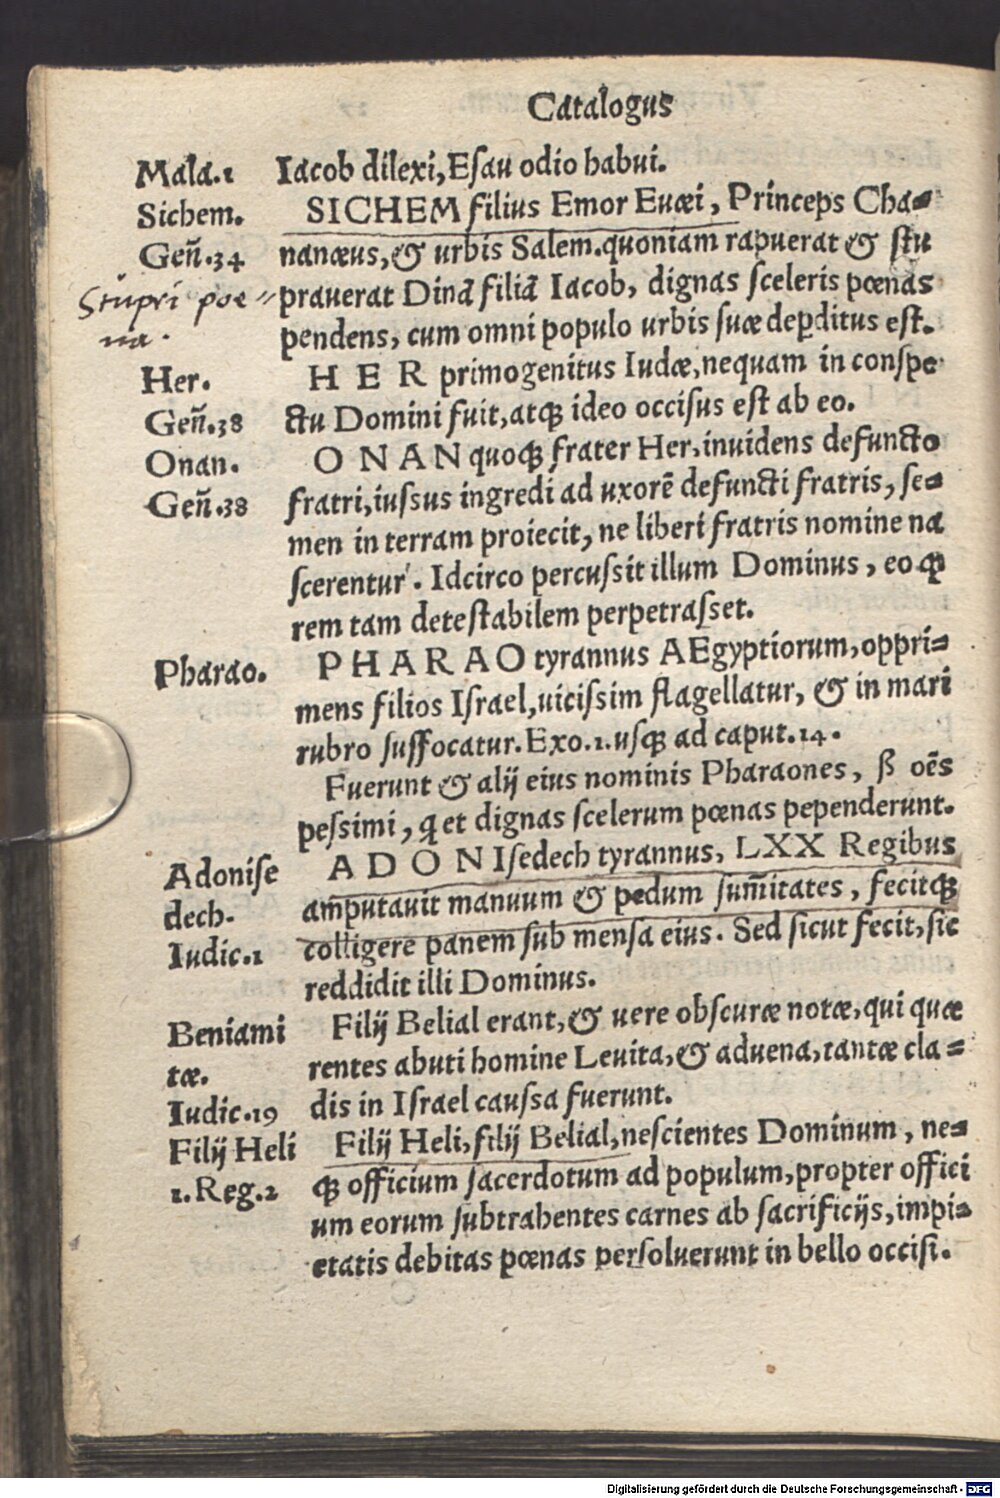 Catalogus
Mala.1 Iacob dilexi, Esau odio habui.
Sichem. SICHEM filius Emor Euæi, Princeps Cha=
Geñ.34 nanæus, & urbis Salem. quoniam rapuerat & stu
Stupri poe= prauerat Dinā filiā Iacob, dignas sceleris pœnas
na. pendens, cum omni populo urbis suæ deperditus est.
Her. H E R primogenitus Iudæ, nequam in conspe
Geñ.38 ctu Domini fuit, atqꝫ ideo occisus est ab eo.
Onan. O N A N quoqꝫ frater Her, inuidens defuncto
Geñ.38 fratri, iussus ingredi ad uxorē defuncti fratris, se=
men in terram proiecit, ne liberi fratris nomine na
scerentur. Idcirco percussit illum Dominus, eo qꝫ
rem tam detestabilem perpetrasset.
Pharao. P H A R A O tyrannus AEgyptiorum, oppri=
mens filios Israel, uicissim flagellatur, & in mari
rubro suffocatur. Exo.1. usqꝫ ad caput.14.
Fuerunt & alij eius nominis Pharaones, ß oēs
pessimi, q̃ et dignas scelerum pœnas pependerunt.
Adonise A D O N I sedech tyrannus, LXX Regibus
dech. amputauit manuum & pedum sum̃itates, fecitqꝫ
Iudic.1 colligere panem sub mensa eius. Sed sicut fecit, sic
reddidit illi Dominus.
Beniami Filij Belial erant, & uere obscuræ notæ, qui quæ
tæ. rentes abuti homine Leuita, & aduena, tantæ cla=
Iudic.19 dis in Israel caussa fuerunt.
Filij Heli Filij Heli, filij Belial, nescientes Dominum, ne=
1.Reg.2 qꝫ officium sacerdotum ad populum, propter offici
um eorum subtrahentes carnes ab sacrificijs, impi=
etatis debitas pœnas persoluerunt in bello occisi.
Digitalisierung gefördert durch die Deutsche Forschungsgemeinschaft - DFG